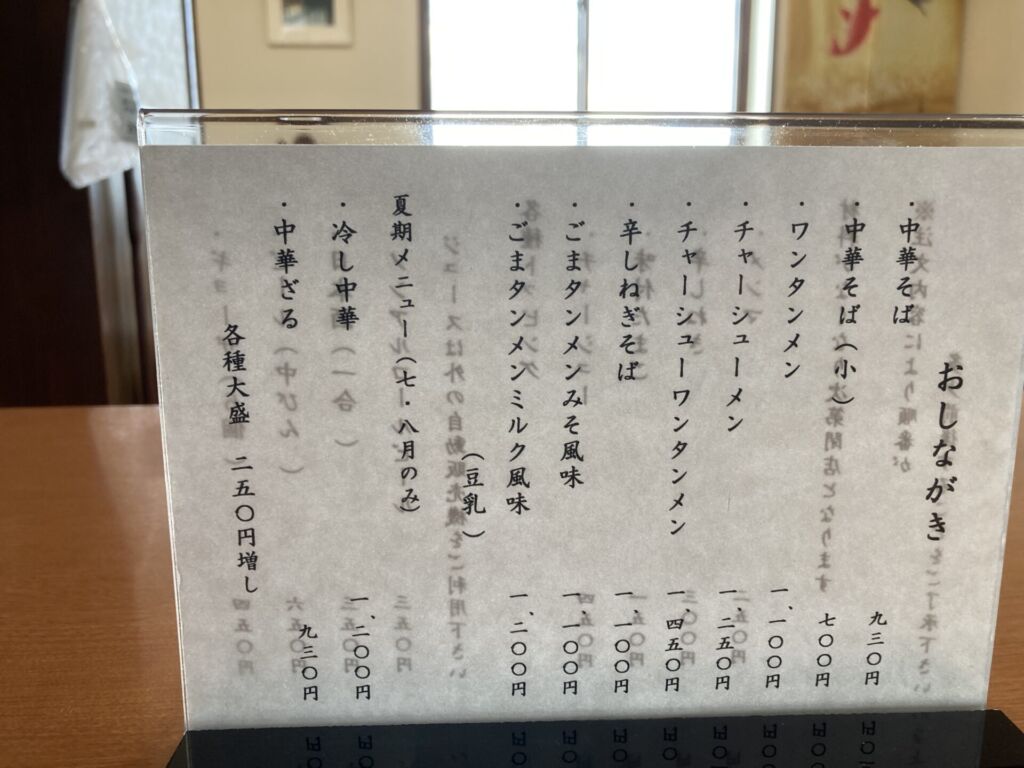 おしながき
・中華そば 九三〇円
・中華そば（小） 七〇〇円
・ワンタンメン 一、一〇〇円
・チャーシューメン 一、二五〇円
・チャーシューワンタンメン 一、四五〇円
・辛しねぎそば 一、一〇〇円
・ごまタンメンみそ風味 一、一〇〇円
・ごまタンメンミルク風味 一、二〇〇円
（豆乳）
夏期メニュー（七・八月のみ）
・冷し中華 一、二〇〇円
・中華ざる 九三〇円
各種大盛 二五〇円増し